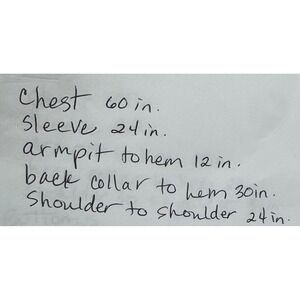 Chest 60 in.
Sleeve 24 in.
armpit to hem 12 in.
back collar to hem 30in.
Shoulder to shoulder 24 in.